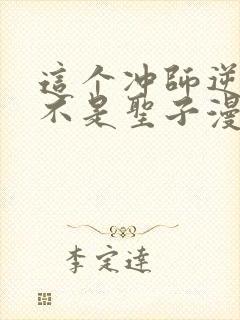 這个冲師逆
不是聖子漫
李定達